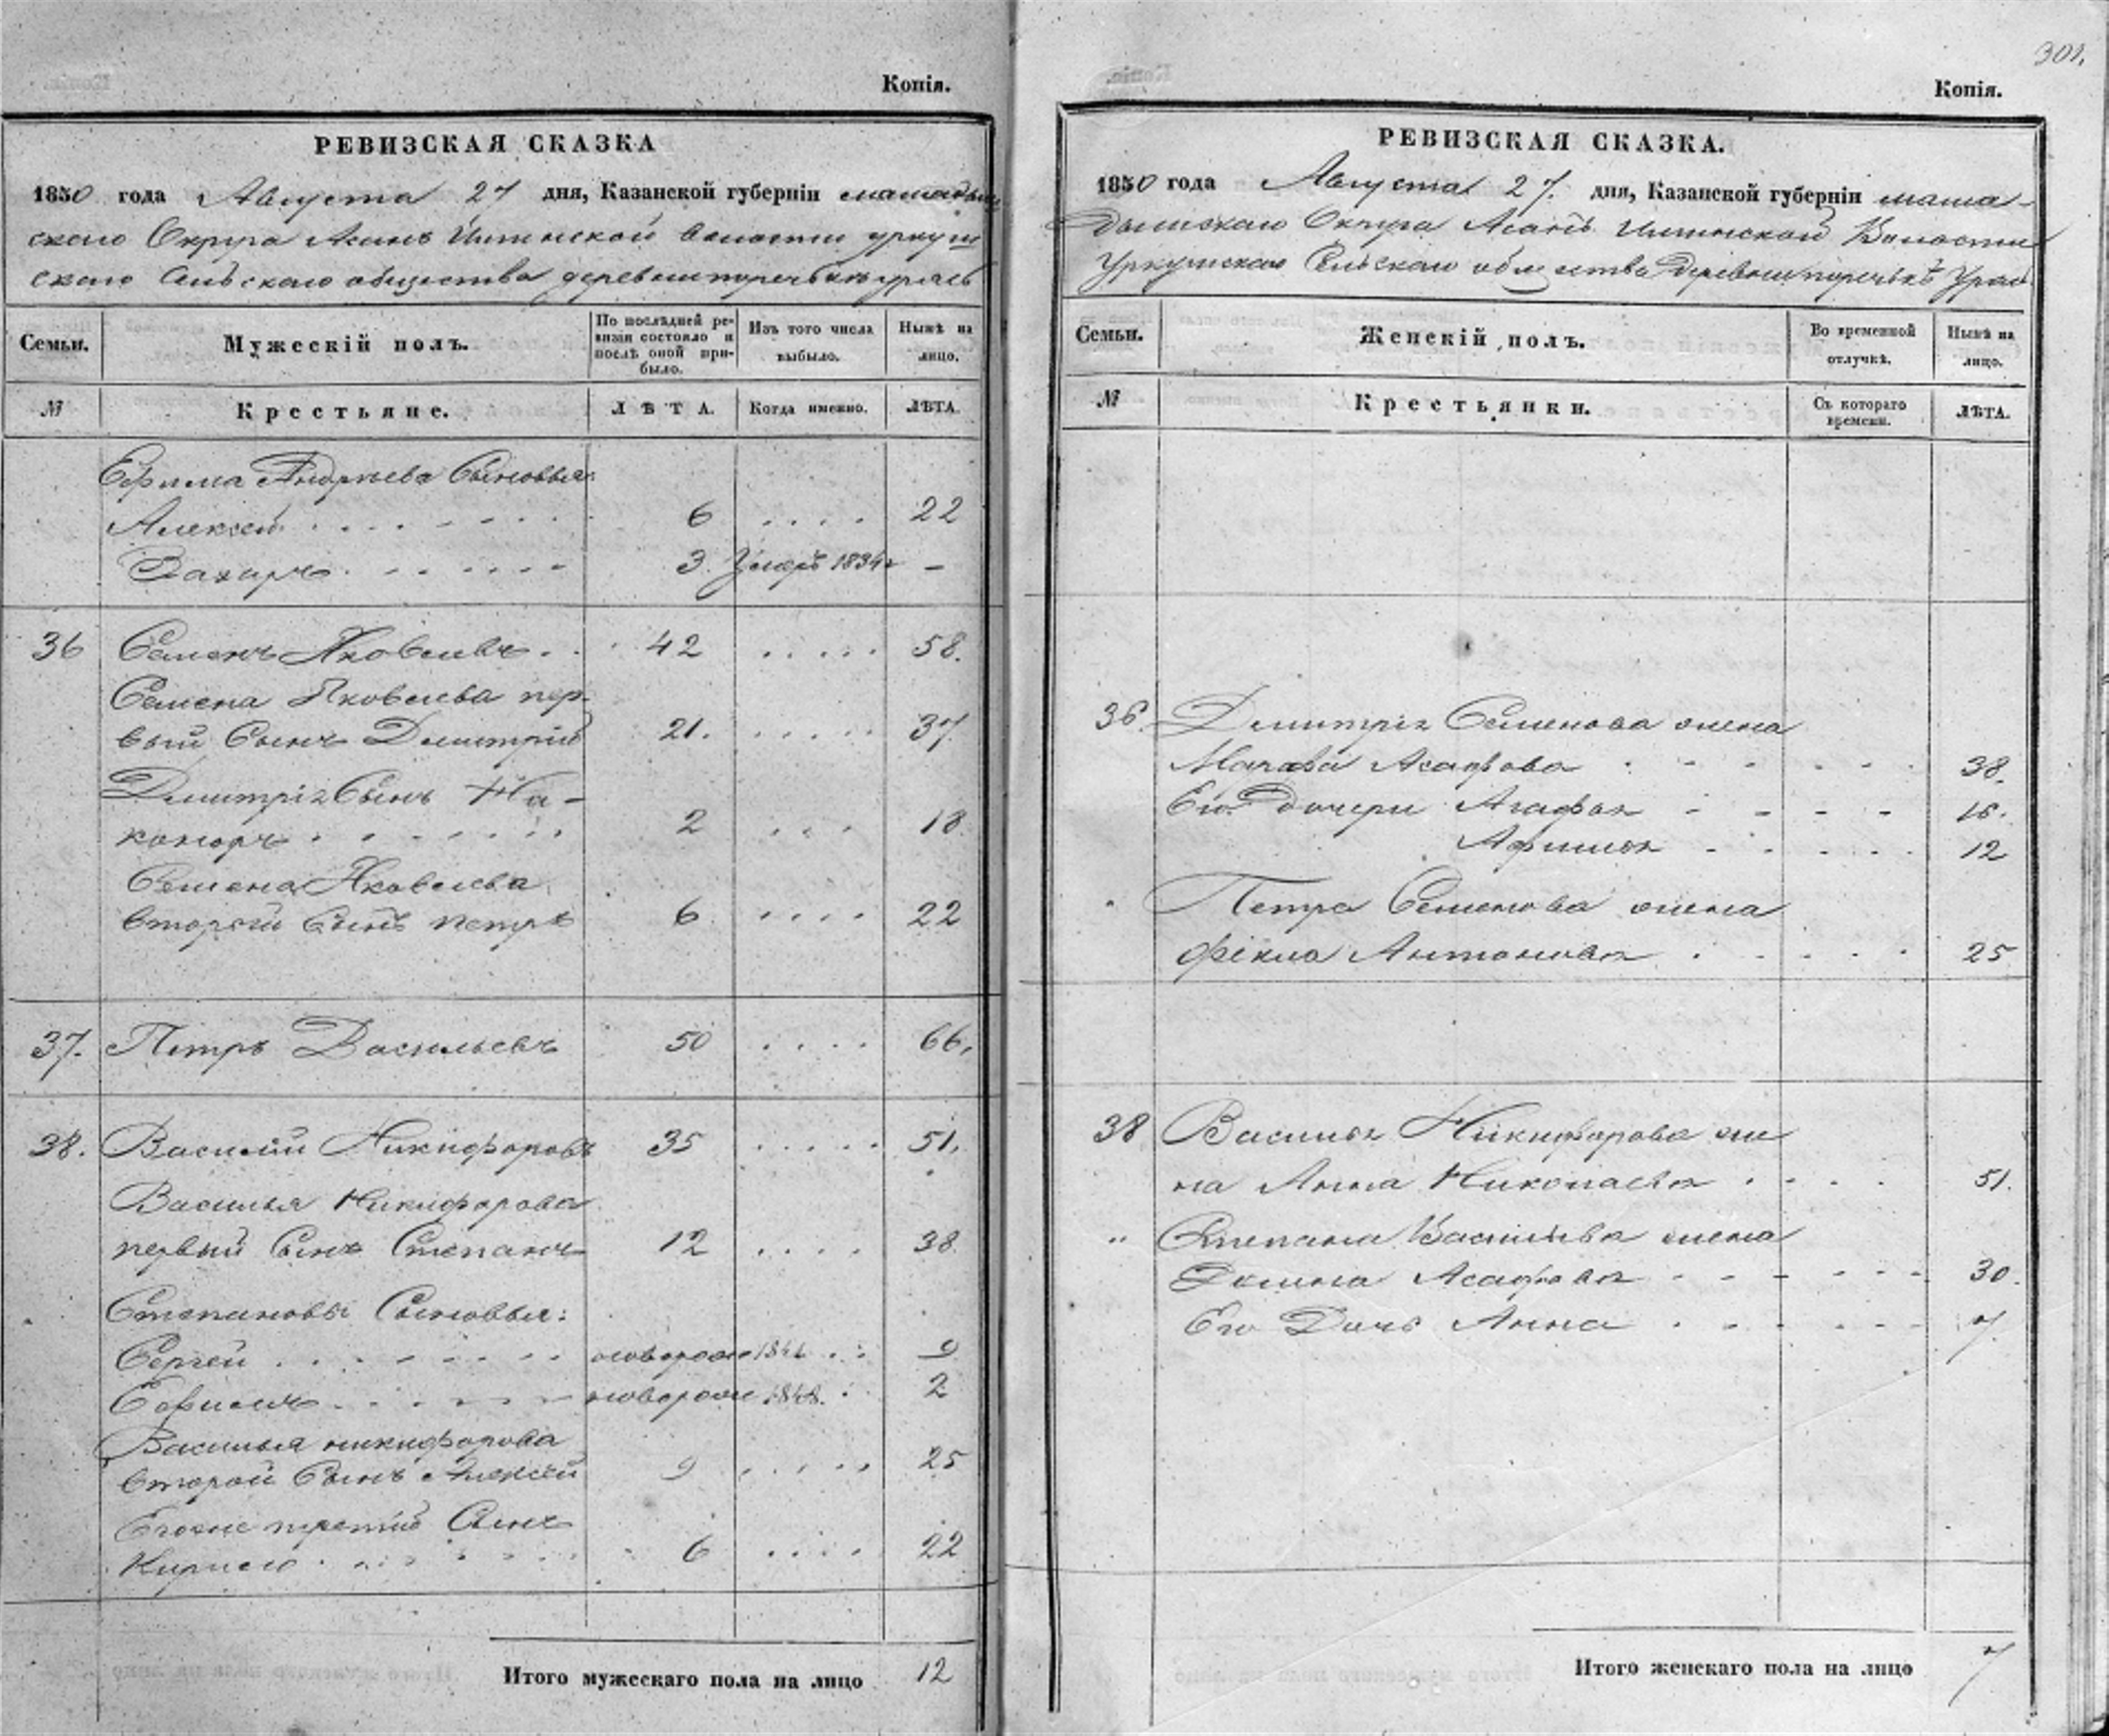 Копія.
РЕВИЗСКАЯ СКАЗКА
1850 года Августа 27 дня, Казанской губерніи мамадыш
скаго Округа волости уркуш
скаго Сельскаго общества деревни
Семьи.
Мужескій полъ.
По послѣдней ре-
визіи состояло и
послѣ оной при-
было.
Изъ того числа
выбыло.
Нынѣ на
лицо.
№
Крестьяне.
ЛѢТА.
Когда именно.
ЛѢТА.
Ефима Андреева Сыновья:
Алексей 6 22
Захаръ 3. Умеръ 1834 –
36 Семенъ Яковлевъ 42 58.
Семена Яковлева пер-
вый Сынъ Дмитрій 21. 37
Дмитрія Сынъ Ни-
каноръ 2 18
Семена Яковлева
второй Сынъ Петръ 6 22
37. Петръ Васильевъ 50 66.
38. Василій Никифоровъ 35 51.
Василья Никифорова
первый Сынъ Степанъ 12 38
Степановы Сыновья:
Сергей 9
Ефимъ 1848. 2
Василья никифорова
второй Сынъ Алексей 9 25
Егоже третій Сынъ
Кирило 6 22
Итого мужескаго пола на лицо 12
301.
Копія.
РЕВИЗСКАЯ СКАЗКА.
1850 года Августа 27. дня, Казанской губерніи мама-
дышскаго Округа Волости
Уркушскаго Сельскаго общества Деревни
Семьи.
Женскій полъ.
Во временной
отлучкѣ.
Нынѣ на
лицо.
№
Крестьянки.
Съ котораго
времени.
ЛѢТА.
36. Дмитрія Семенова жена
Марфа Асафова 38.
Его Дочери Агафья 16.
12
Петра Семенова жена
Фекла Антонова 25
38 Василья Никифорова же
на Анна Николаева 51.
" Степана Васильева жена
Домна Асафова 30.
Его Дочь Анна 7.
Итого женскаго пола на лицо 7